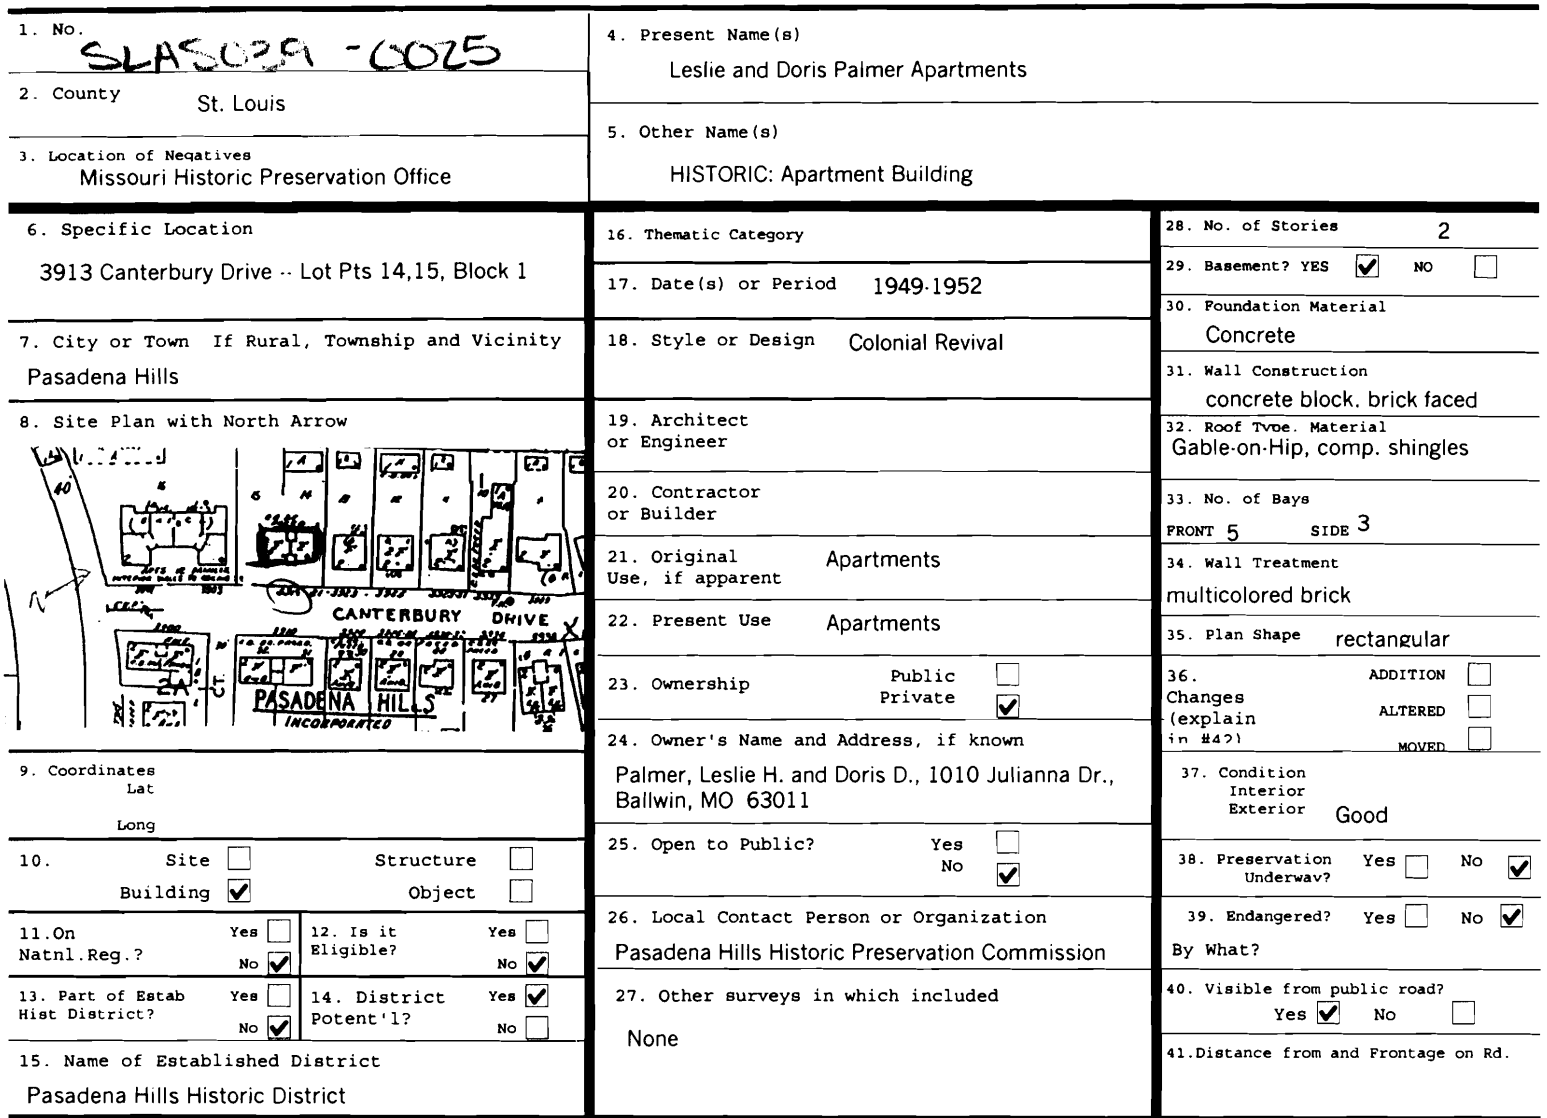 1. No.
SLAS029 -0025
2. County St. Louis
3. Location of Negatives
Missouri Historic Preservation Office
4. Present Name(s)
Leslie and Doris Palmer Apartments
5. Other Name(s)
HISTORIC: Apartment Building
6. Specific Location
3913 Canterbury Drive -- Lot Pts 14,15, Block 1
7. City or Town If Rural, Township and Vicinity
Pasadena Hills
8. Site Plan with North Arrow
40
CANTERBURY DRIVE
2A
CT.
PASADENA HILLS
INCORPORATED
9. Coordinates
Lat
Long
10. Site Structure
Building ✔ Object
11.On Yes
Natnl.Reg.? No ✔
12. Is it Yes
Eligible? No ✔
13. Part of Estab Yes
Hist District? No ✔
14. District Yes ✔
Potent'l? No
15. Name of Established District
Pasadena Hills Historic District
16. Thematic Category
17. Date(s) or Period 1949-1952
18. Style or Design Colonial Revival
19. Architect
or Engineer
20. Contractor
or Builder
21. Original Apartments
Use, if apparent
22. Present Use Apartments
23. Ownership Public
Private ✔
24. Owner's Name and Address, if known
Palmer, Leslie H. and Doris D., 1010 Julianna Dr.,
Ballwin, MO 63011
25. Open to Public? Yes
No ✔
26. Local Contact Person or Organization
Pasadena Hills Historic Preservation Commission
27. Other surveys in which included
None
28. No. of Stories 2
29. Basement? YES ✔ NO
30. Foundation Material
Concrete
31. Wall Construction
concrete block, brick faced
32. Roof Type. Material
Gable-on-Hip, comp. shingles
33. No. of Bays
FRONT 5 SIDE 3
34. Wall Treatment
multicolored brick
35. Plan Shape rectangular
36. ADDITION
Changes
(explain ALTERED
in #42)
MOVED
37. Condition
Interior
Exterior Good
38. Preservation Yes No ✔
Underway?
39. Endangered? Yes No ✔
By What?
40. Visible from public road?
Yes ✔ No
41.Distance from and Frontage on Rd.